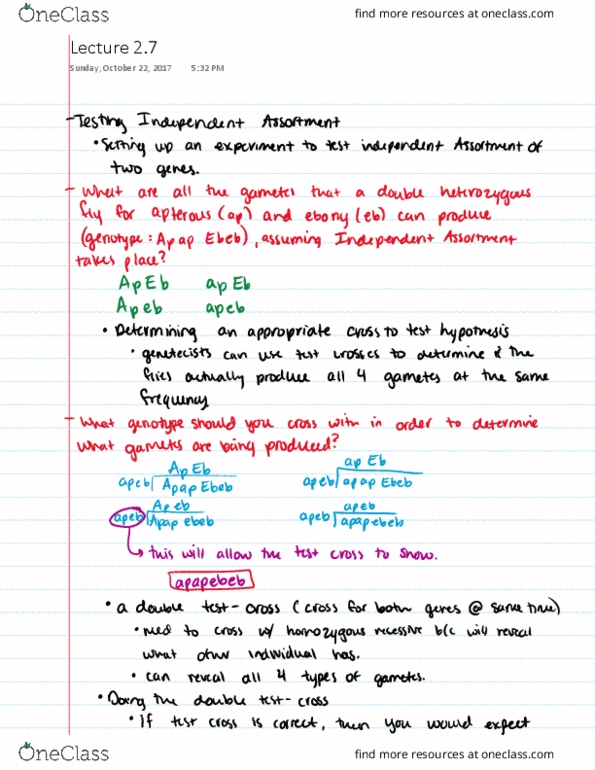 OneClass
find more resources at oneclass.com
Lecture 2.7
Sunday, October 22, 2017 5:32 PM
- Testing Independent Assortment
• Setting up an experiment to test independent Assortment of
two genes.
- What are all the gametes that a double heterozygous
fly for apterous (ap) and ebony (eb) can produce
(genotype: Apap Ebeb), assuming Independent Assortment
takes place?
ApEb apEb
Apeb apeb
• Determining an appropriate cross to test hypothesis
• genetecists can use test crosses to determine if the
flies actually produce all 4 gametes at the same
frequency
- What genotype should you cross with in order to determine
what gametes are being produced?
ApEb apEb
apeb Apap Ebeb apeb apap Ebeb
Apeb apeb
apeb Apap ebeb apeb apapebeb
this will allow the test cross to show.
apapebeb
• a double test-cross (cross for both genes @ same time)
• need to cross w/ homozygous recessive b/c will reveal
what other individual has.
• can reveal all 4 types of gametes.
• Doing the double test-cross
• If test cross is correct, then you would expect
OneClass
find more resources at oneclass.com